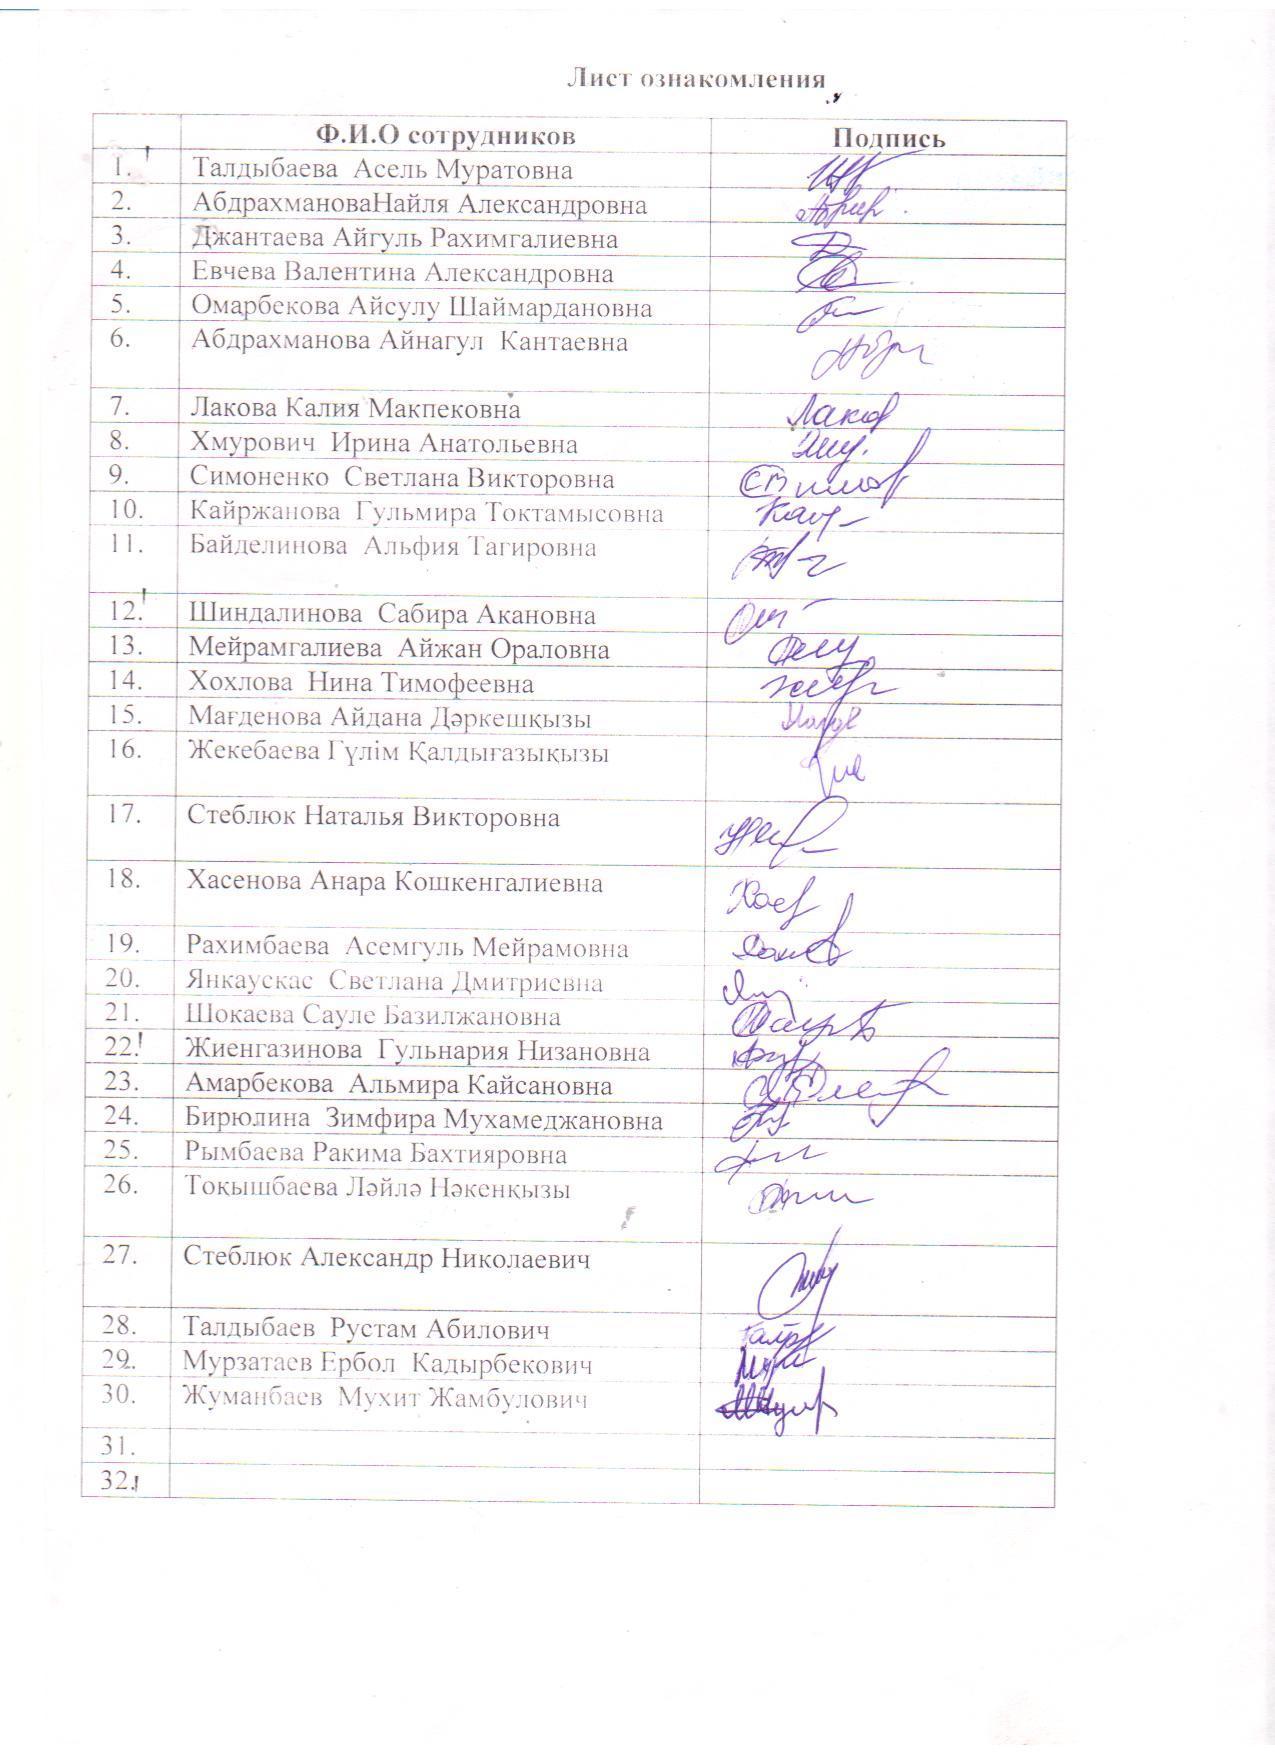 Лист ознакомления
Ф.И.О сотрудников Подпись
1. Талдыбаева Асель Муратовна
2. АбдрахмановаНайля Александровна
3. Джантаева Айгуль Рахимгалиевна
4. Евчева Валентина Александровна
5. Омарбекова Айсулу Шаймардановна
6. Абдрахманова Айнагул Кантаевна
7. Лакова Калия Макпековна
8. Хмурович Ирина Анатольевна
9. Симоненко Светлана Викторовна
10. Кайржанова Гульмира Токтамысовна
11. Байделинова Альфия Тагировна
12. Шиндалинова Сабира Акановна
13. Мейрамгалиева Айжан Ораловна
14. Хохлова Нина Тимофеевна
15. Мағденова Айдана Дәркешқызы
16. Жекебаева Гүлім Қалдығазықызы
17. Стеблюк Наталья Викторовна
18. Хасенова Анара Кошкенгалиевна
19. Рахимбаева Асемгуль Мейрамовна
20. Янкаускас Светлана Дмитриевна
21. Шокаева Сауле Базилжановна
22. Жиенгазинова Гульнария Низановна
23. Амарбекова Альмира Кайсановна
24. Бирюлина Зимфира Мухамеджановна
25. Рымбаева Ракима Бахтияровна
26. Тоқышбаева Ләйлә Нәкенқызы
27. Стеблюк Александр Николаевич
28. Талдыбаев Рустам Абилович
29. Мурзатаев Ербол Кадырбекович
30. Жуманбаев Мухит Жамбулович
31.
32.